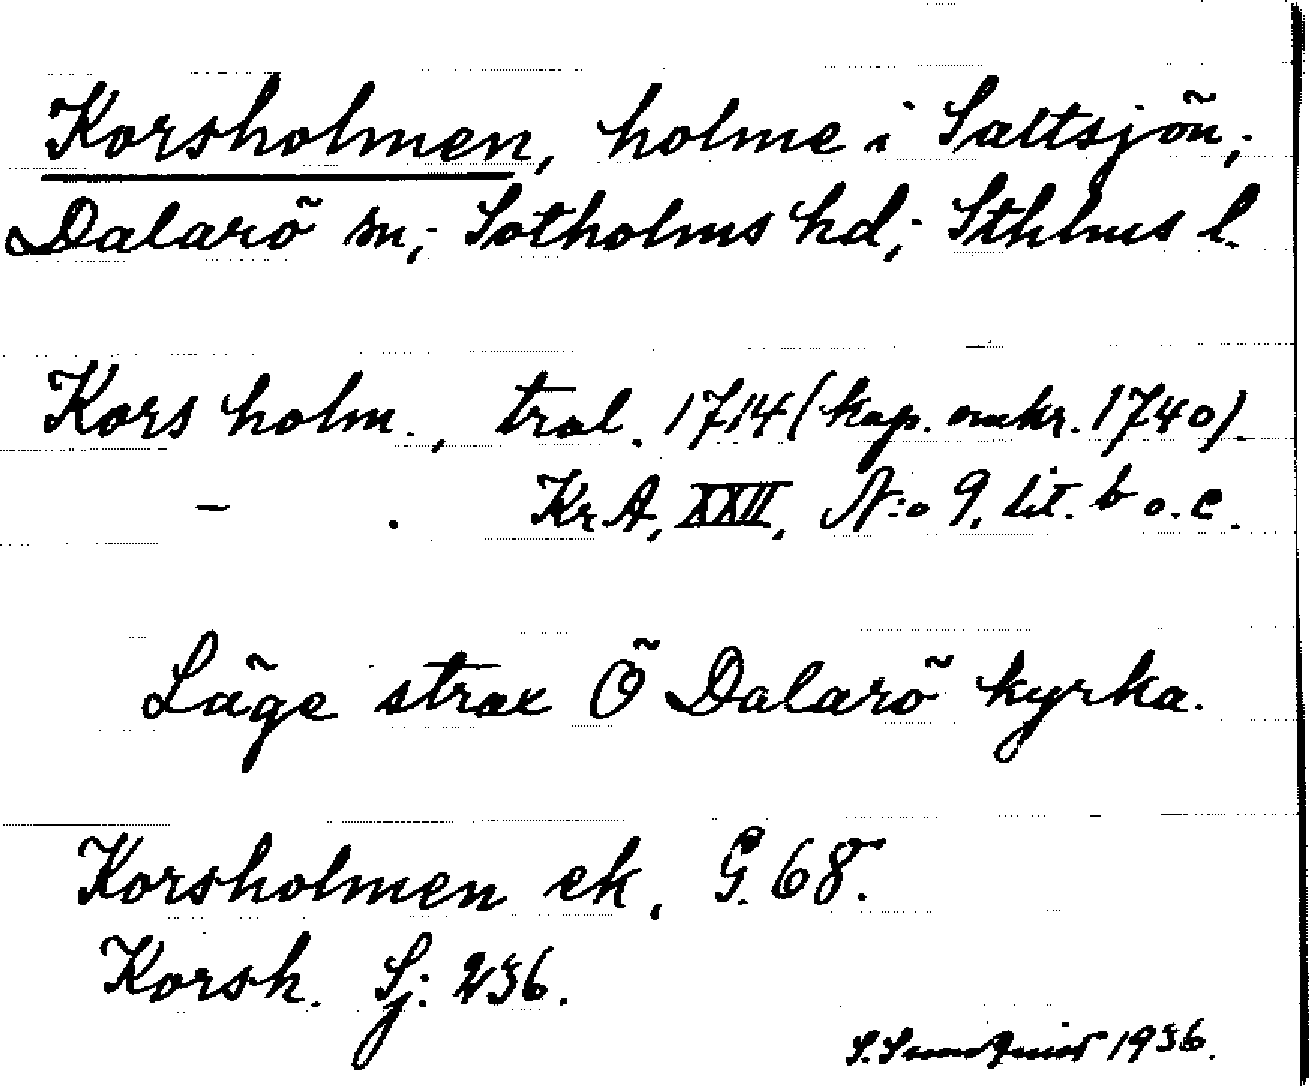 Korsholmen, holme i Saltsjön,
Dalarö sn; Sotholms hd; Sthlms l.
Korsholm., tral. 1714 (kop. omkr. 1740).
– . KrA, XXII, N:o 9, lit. b o. c.
Läge strax Ö Dalarö kyrka.
Korsholmen ek. G. 68.
Korsh. Sj. 236.
S. 1936.